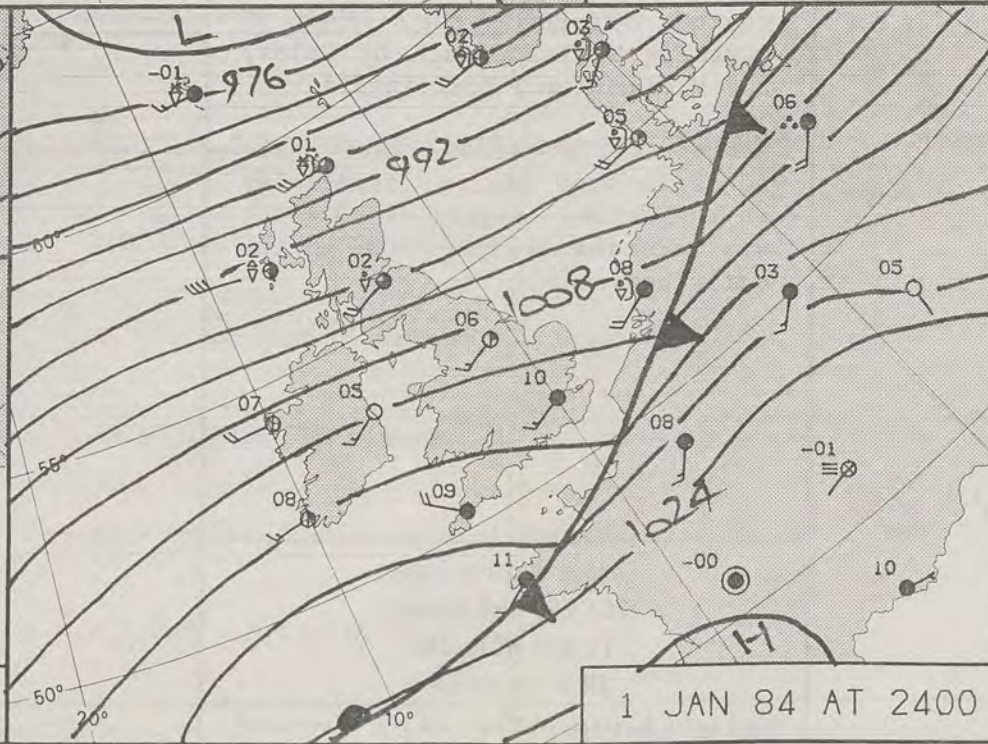 L
02
03
-01
976
06
05
01
992
60°
02
02
08
1008
03
05
06
10
07
05
08
-01
55°
08
09
1024
11
-00
10
H
50°
20°
10°
1 JAN 84 AT 2400